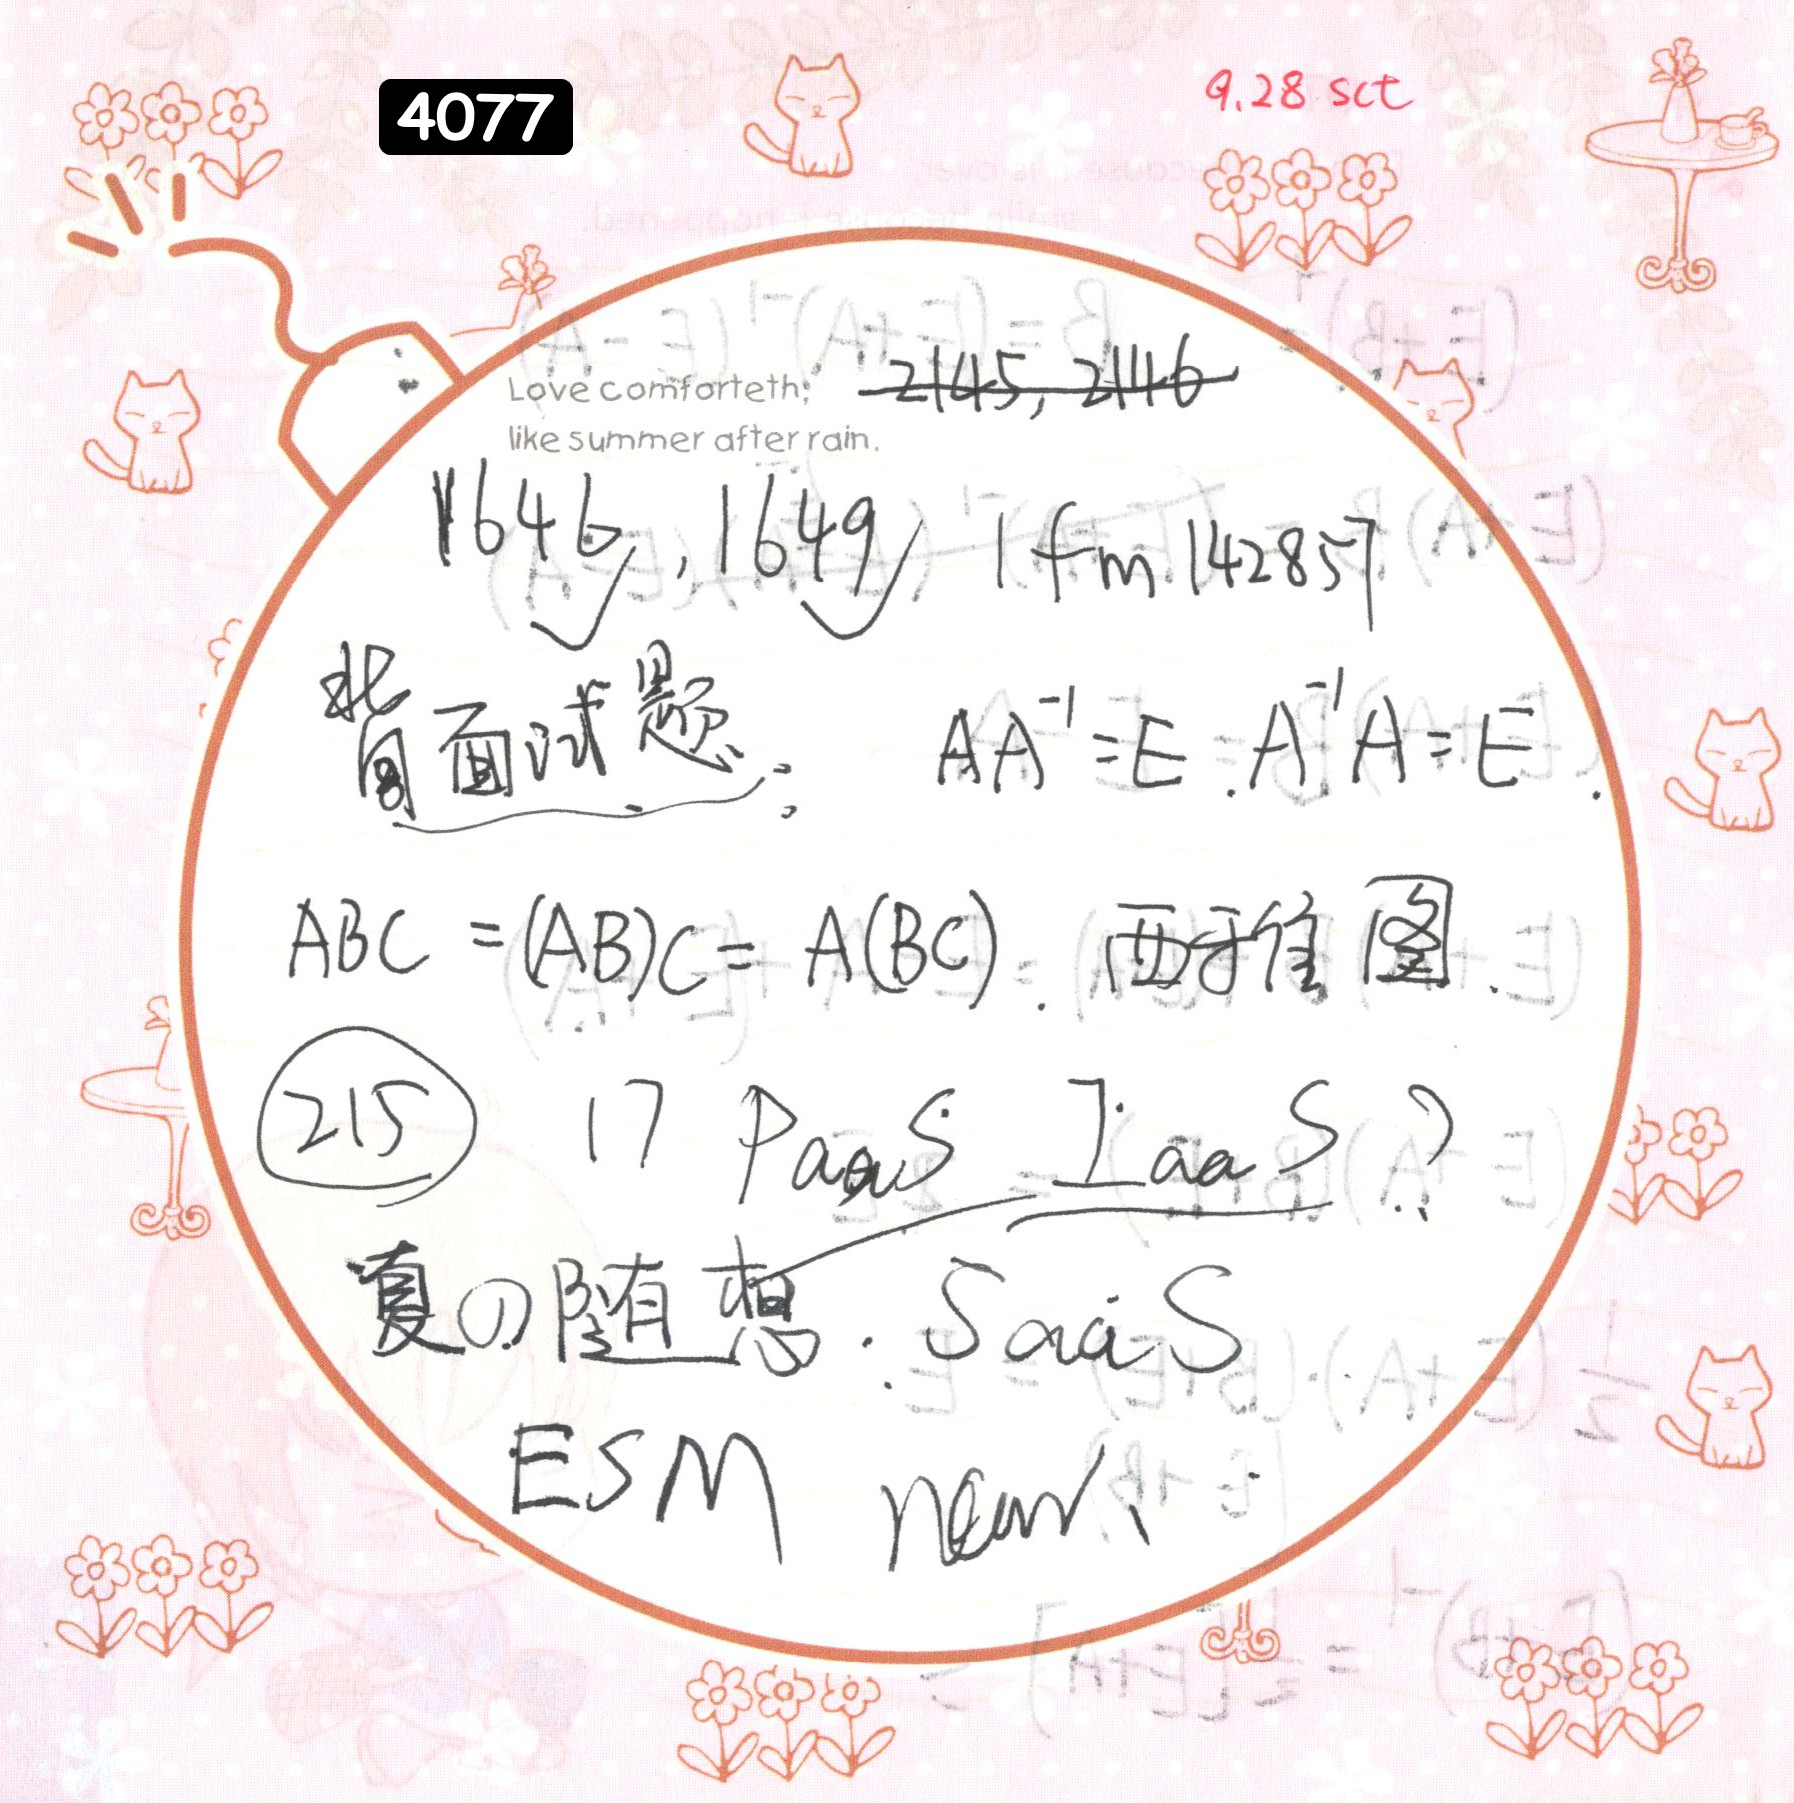 4077
9.28 sct
Love comforteth;
like summer after rain.
2145, 2146
1646, 1649 1fm 142857
背面试题 AA⁻¹=E. A⁻¹A=E.
ABC=(AB)C=A(BC). 西雅图.
215 17 PaaS IaaS?
夏の随想. SaaS
ESM